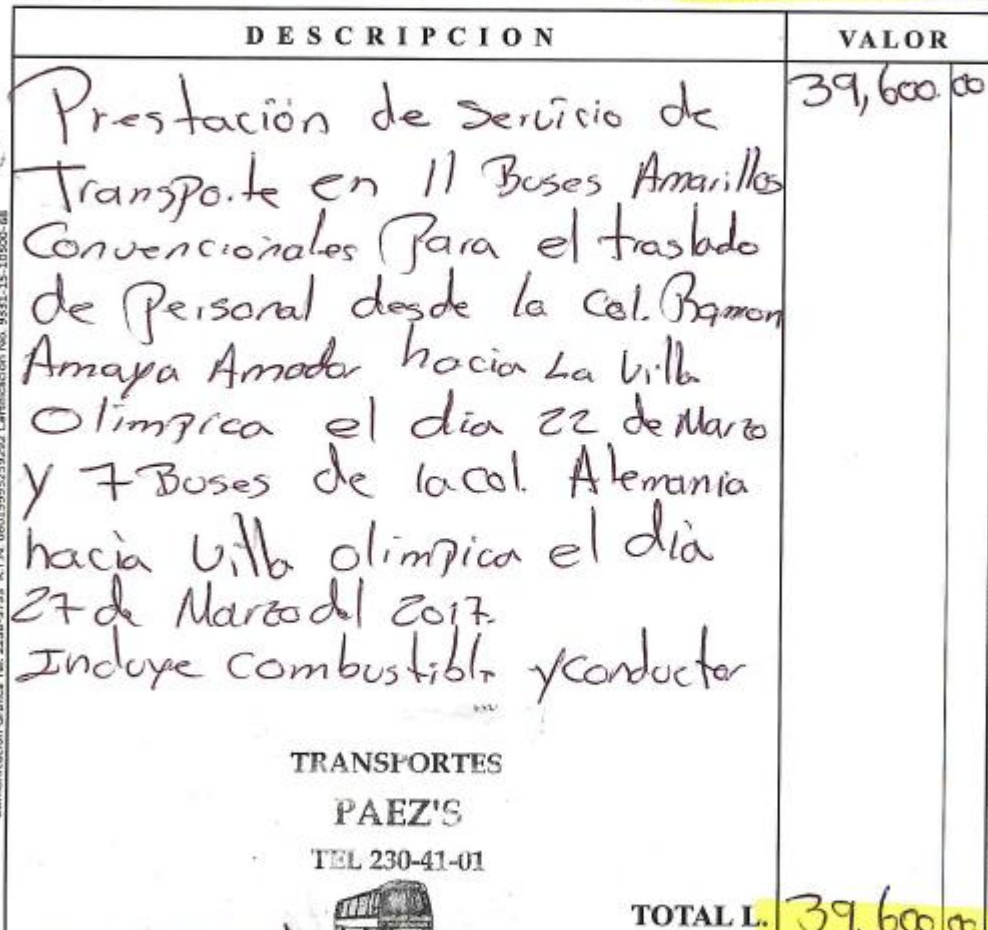 DESCRIPCION VALOR
Prestación de Servicio de 39,600.00
Transporte en 11 Buses Amarillos
Convencionales Para el traslado
de Personal desde la Col. Ramon
Amaya Amador hacia La Villa
Olimpica el dia 22 de Marzo
y 7 Buses de la Col. Alemania
hacia Villa olimpica el dia
27 de Marzo del 2017.
Incluye Combustible y conductor
TRANSPORTES
PAEZ'S
TEL 230-41-01
TOTAL L. 39,600.00